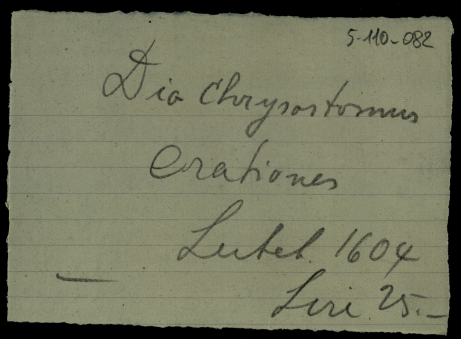 5-110-082
Dio Chrysostomus
Orationes
Lutet. 1604
Lire 25.-